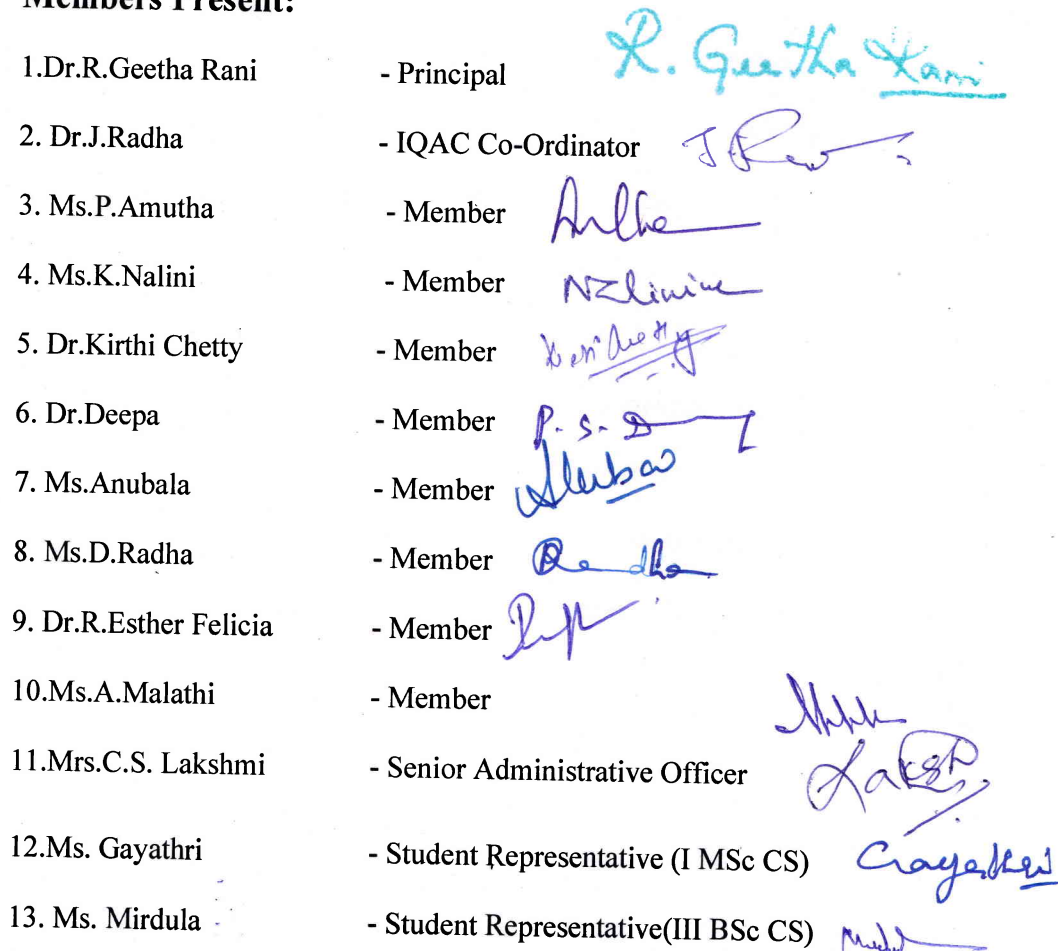 Members Present:
1.Dr.R.Geetha Rani - Principal R. Geetha Rani
2. Dr.J.Radha - IQAC Co-Ordinator
3. Ms.P.Amutha - Member
4. Ms.K.Nalini - Member
5. Dr.Kirthi Chetty - Member
6. Dr.Deepa - Member P. S. D
7. Ms.Anubala - Member
8. Ms.D.Radha - Member Radha
9. Dr.R.Esther Felicia - Member
10.Ms.A.Malathi - Member
11.Mrs.C.S. Lakshmi - Senior Administrative Officer
12.Ms. Gayathri - Student Representative (I MSc CS) Gayathri
13. Ms. Mirdula - Student Representative(III BSc CS)